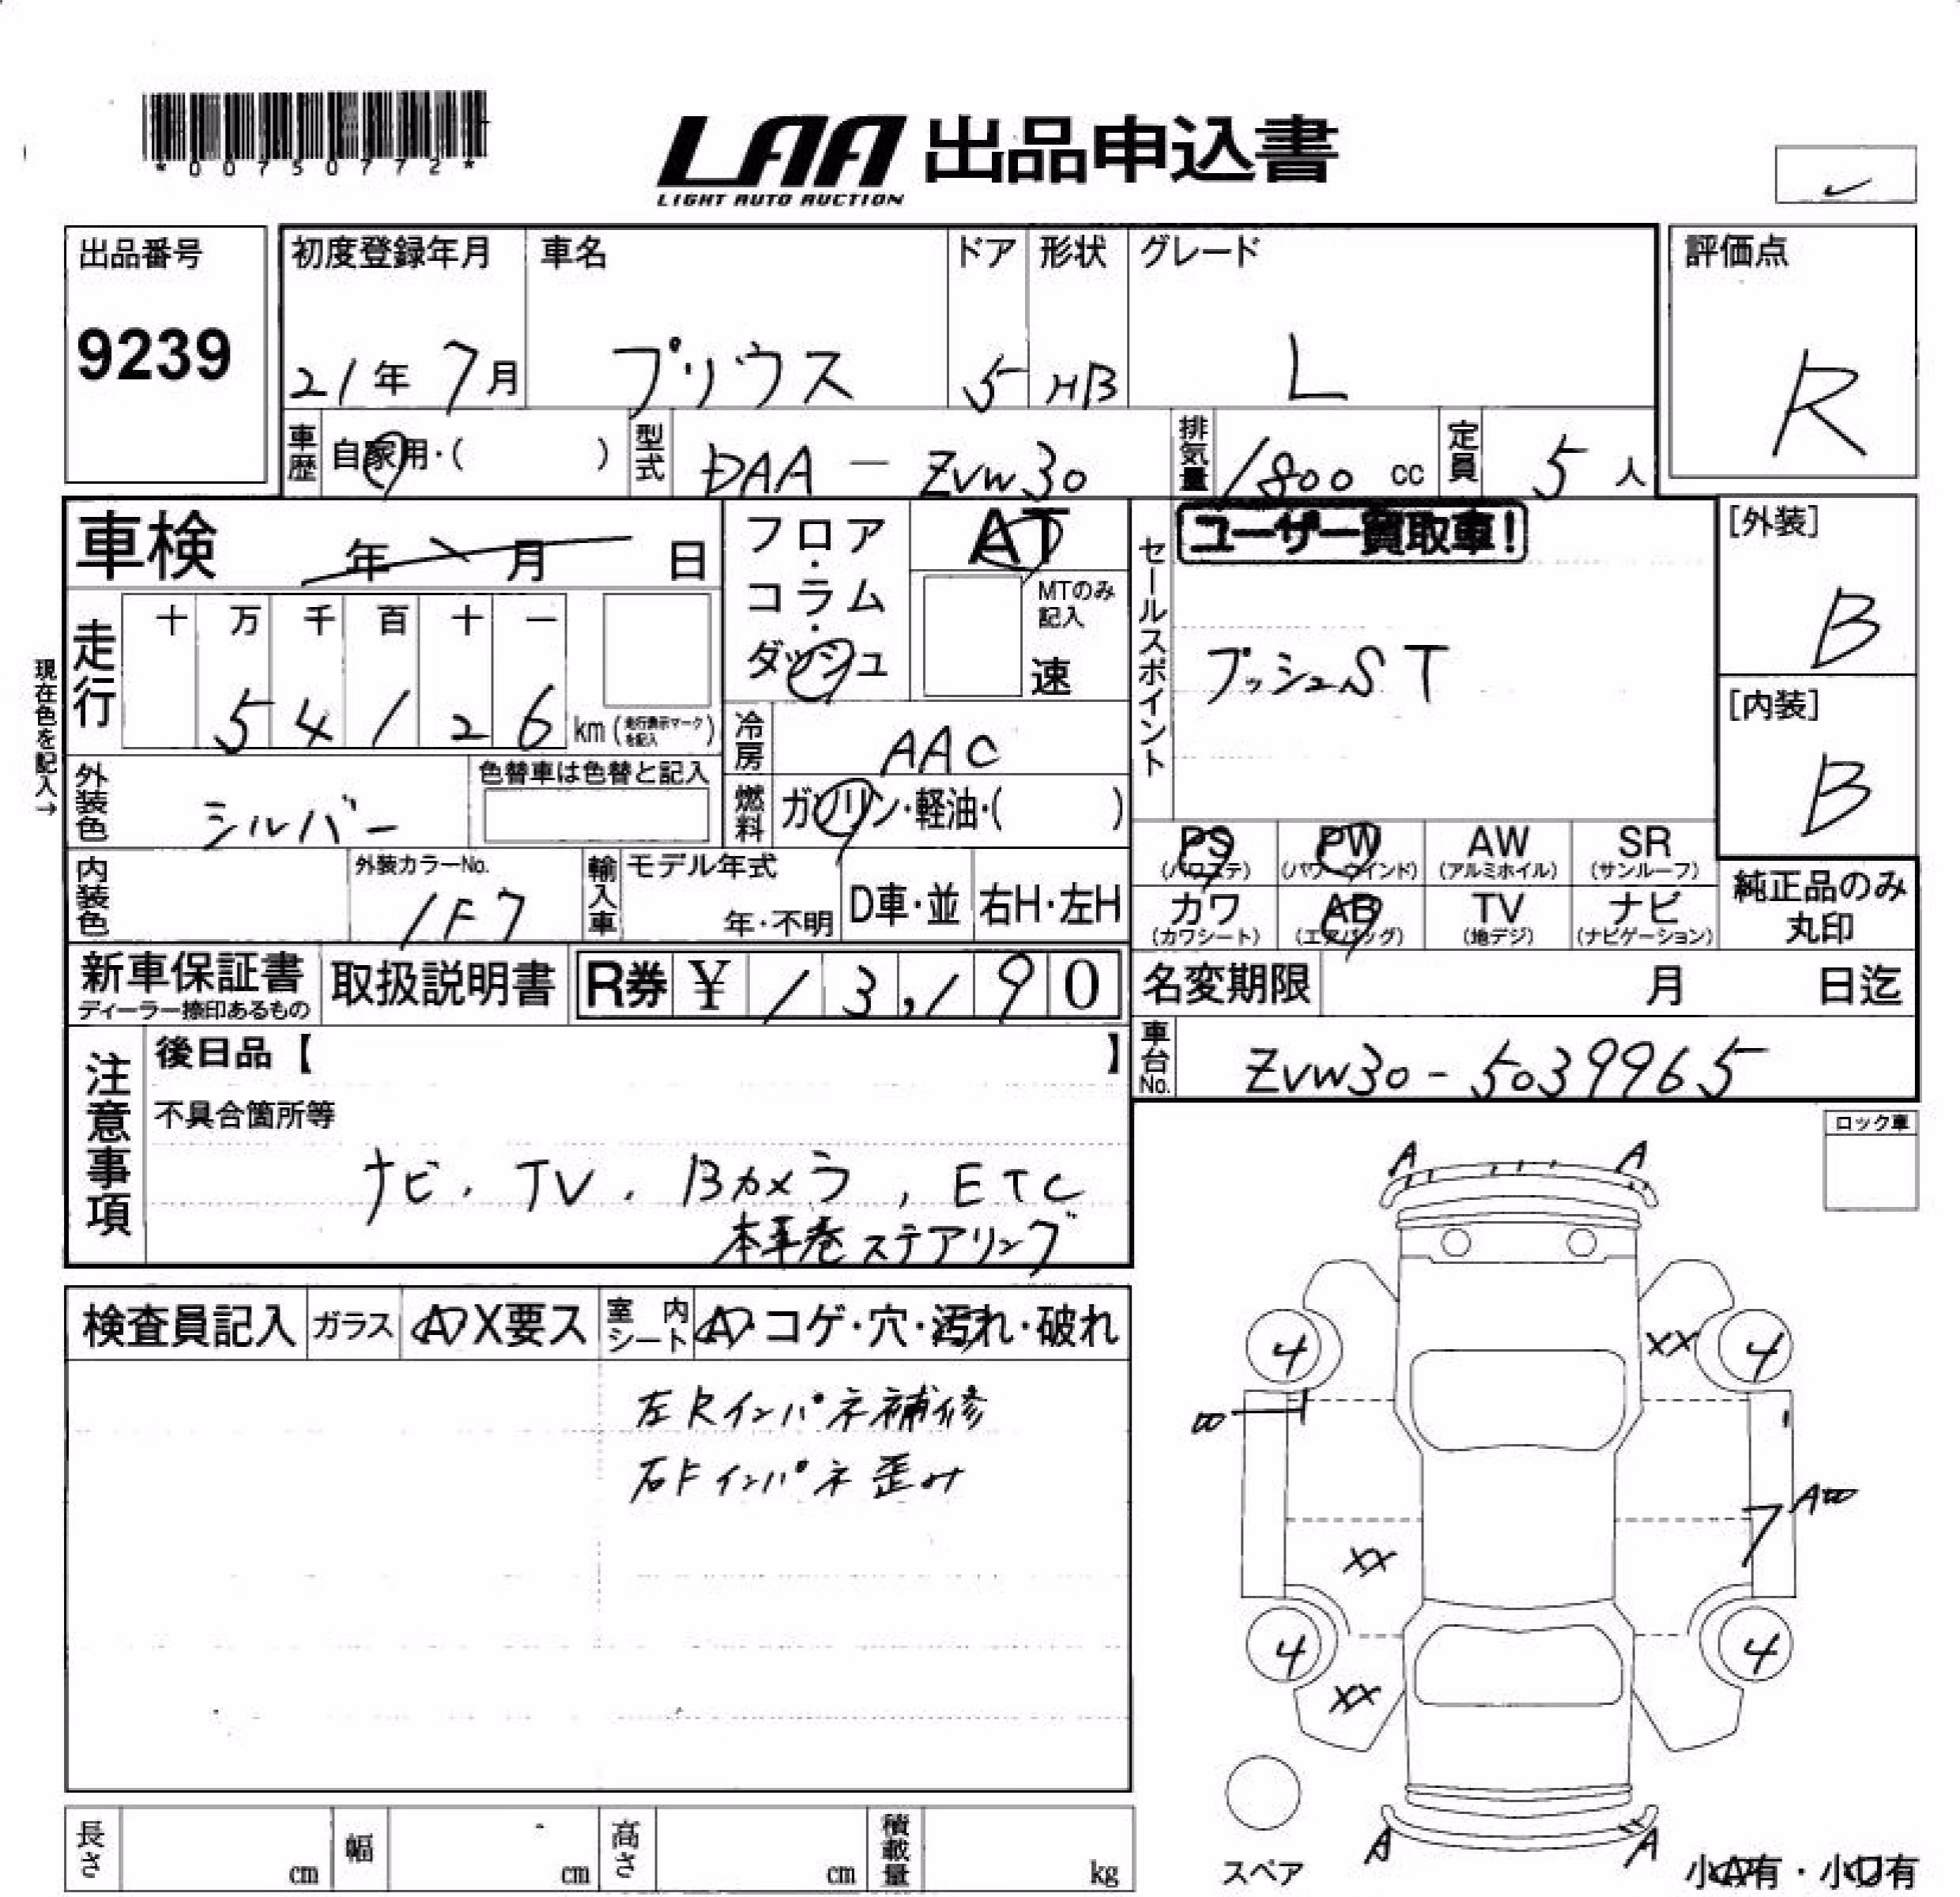 *00750772*
LAA 出品申込書
LIGHT AUTO AUCTION
出品番号
9239
初度登録年月 車名 ドア 形状 グレード
21年 7月 プリウス 5 HB L
評価点
R
車歴 自家用・( ) 型式 DAA-ZVW30 排気量 1800 cc 定員 5 人
車検 年 月 日
フロア・コラム・ダッシュ
AT
MTのみ記入
速
セールスポイント
ユーザー買取車!
プッシュST
[外装]
B
[内装]
B
現在色を記入→
走行 十 万 千 百 十 一
54126 km (走行表示マークを記入)
冷房 AAC
外装色 シルバー 色替車は色替と記入
燃料 ガソリン・軽油・( )
PS (パワステ) PW (パワーウインド) AW (アルミホイル) SR (サンルーフ)
カワ (カワシート) AB (エアバッグ) TV (地デジ) ナビ (ナビゲーション)
純正品のみ丸印
内装色 外装カラーNo. 1F7
輸入車 モデル年式 年・不明 D車・並 右H・左H
新車保証書 ディーラー捺印あるもの
取扱説明書
R券 ¥ 13,190
名変期限 月 日迄
車台No. ZVW30-5039965
注意事項
後日品【 】
不具合箇所等
ナビ、TV、Bカメラ、ETC
本革巻ステアリング
ロック車
検査員記入 ガラス A X要ス 室内シート A・コゲ・穴・汚れ・破れ
左Rインパネ補修
右Fインパネ歪み
A A
4 XX 4
XX
4 4
XX
A A
スペア
小A有・小U有
長さ cm 幅 cm 高さ cm 積載量 kg